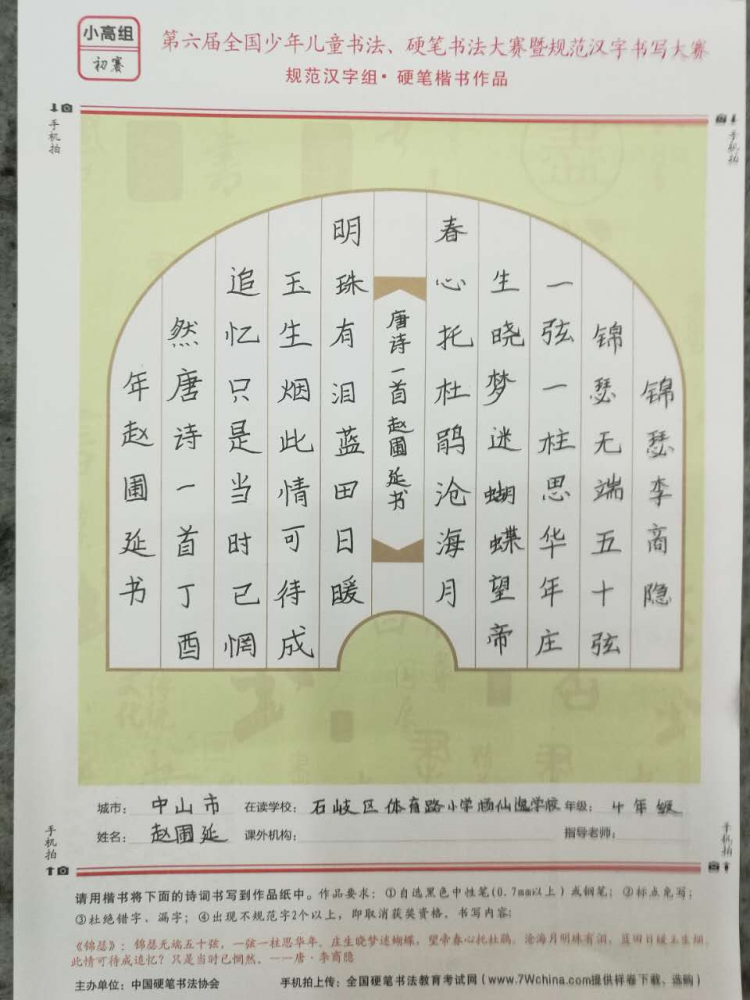 小高组
初赛
第六届全国少年儿童书法、硬笔书法大赛暨规范汉字书写大赛
规范汉字组·硬笔楷书作品
手机拍
手机拍
锦瑟李商隐
锦瑟无端五十弦
一弦一柱思华年庄
生晓梦迷蝴蝶望帝
春心托杜鹃沧海月
唐诗一首赵圃延书
明珠有泪蓝田日暖
玉生烟此情可待成
追忆只是当时已惘
然唐诗一首丁酉
年赵圃延书
城市：中山市 在读学校：石岐区体育路小学杨仙逸学校 年级：年级
姓名：赵圃延 课外机构： 指导老师：
手机拍
手机拍
请用楷书将下面的诗词书写到作品纸中。作品要求：①自选黑色中性笔(0.7mm以上)或钢笔；②标点免写；
③杜绝错字、漏字；④出现不规范字2个以上，即取消获奖资格。书写内容：
《锦瑟》：锦瑟无端五十弦，一弦一柱思华年。庄生晓梦迷蝴蝶，望帝春心托杜鹃。沧海月明珠有泪，蓝田日暖玉生烟。
此情可待成追忆？只是当时已惘然。——唐·李商隐
主办单位：中国硬笔书法协会 手机拍上传：全国硬笔书法教育考试网（www.7Wchina.com提供样卷下载、选购）